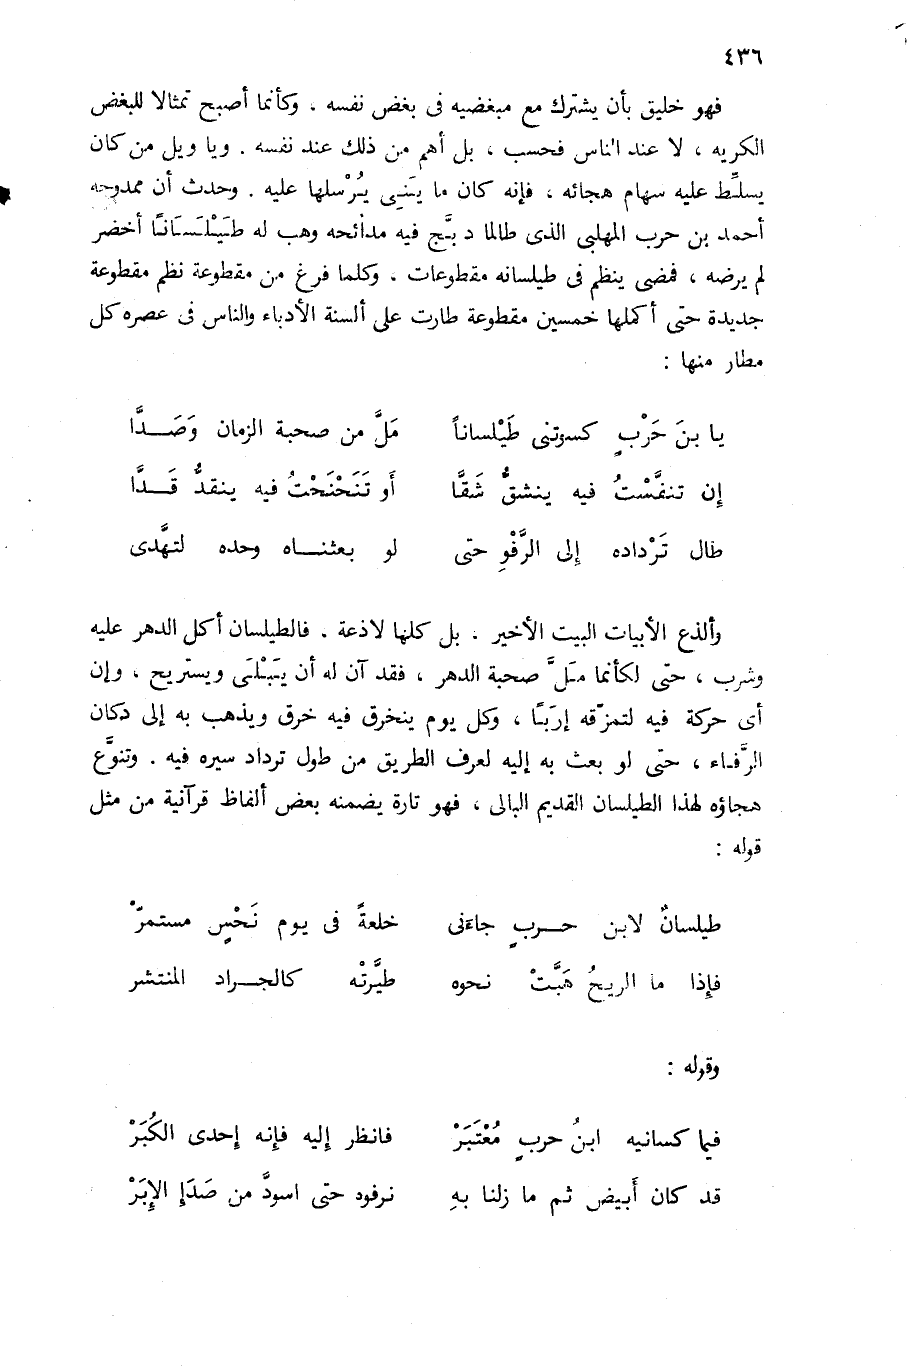 ٤٣٦
فهو خليق بأن يشترك مع مبغضيه فى بغض نفسه ، وكأنما أصبح تمثالا للبغض
الكريه ، لا عند الناس فحسب ، بل أهم من ذلك عند نفسه . ويا ويل من كان
يسلِّط عليه سهام هجائه ، فإنه كان ما يَنِى يُرْسلها عليه . وحدث أن ممدوحه
أحمد بن حرب المهلبى الذى طالما دبَّج فيه مدائحه وهب له طَيْلَسَانًا أخضر
لم يرضه ، فمضى ينظم فى طيلسانه مقطوعات . وكلما فرغ من مقطوعة نظم مقطوعة
جديدة حتى أكملها خمسين مقطوعة طارت على ألسنة الأدباء والناس فى عصره كل
مطار منها :
يا بنَ حَرْبٍ كسوتنى طَيْلساناً مَلَّ من صحبة الزمان وَصَدَّا
إن تنفَّسْتُ فيه ينشقُّ شَقًّا أو تَنَحْنَحْتُ فيه ينقدُّ قَدَّا
طال تَرْداده إلى الرَّفْوِ حتى لو بعثناه وحده لتهَّدى
وألذع الأبيات البيت الأخير . بل كلها لاذعة . فالطيلسان أكل الدهر عليه
وشرب ، حتى لكأنما مَلَّ صحبة الدهر ، فقد آن له أن يَبْلَى ويستريح ، وإن
أى حركة فيه لتمزّقه إرَبًا ، وكل يوم ينخرق فيه خرق ويذهب به إلى دكان
الرَّفاء ، حتى لو بعث به إليه لعرف الطريق من طول ترداد سيره فيه . وتنوَّع
هجاؤه لهذا الطيلسان القديم البالى ، فهو تارة يضمنه بعض ألفاظ قرآنية من مثل
قوله :
طيلسانٌ لابن حربٍ جاءنى خلعةً فى يوم نَحْسٍ مستمرّْ
فإذا ما الريحُ هَبَّتْ نحوه طيَّرتْه كالجراد المنتشر
وقوله :
فيما كسانيه ابنُ حربٍ مُعْتَبَرْ فانظر إليه فإنه إحدى الكُبَرْ
قد كان أبيض ثم ما زلنا بهِ نرفوه حتى اسودَّ من صَدَإ الإِبَرْ